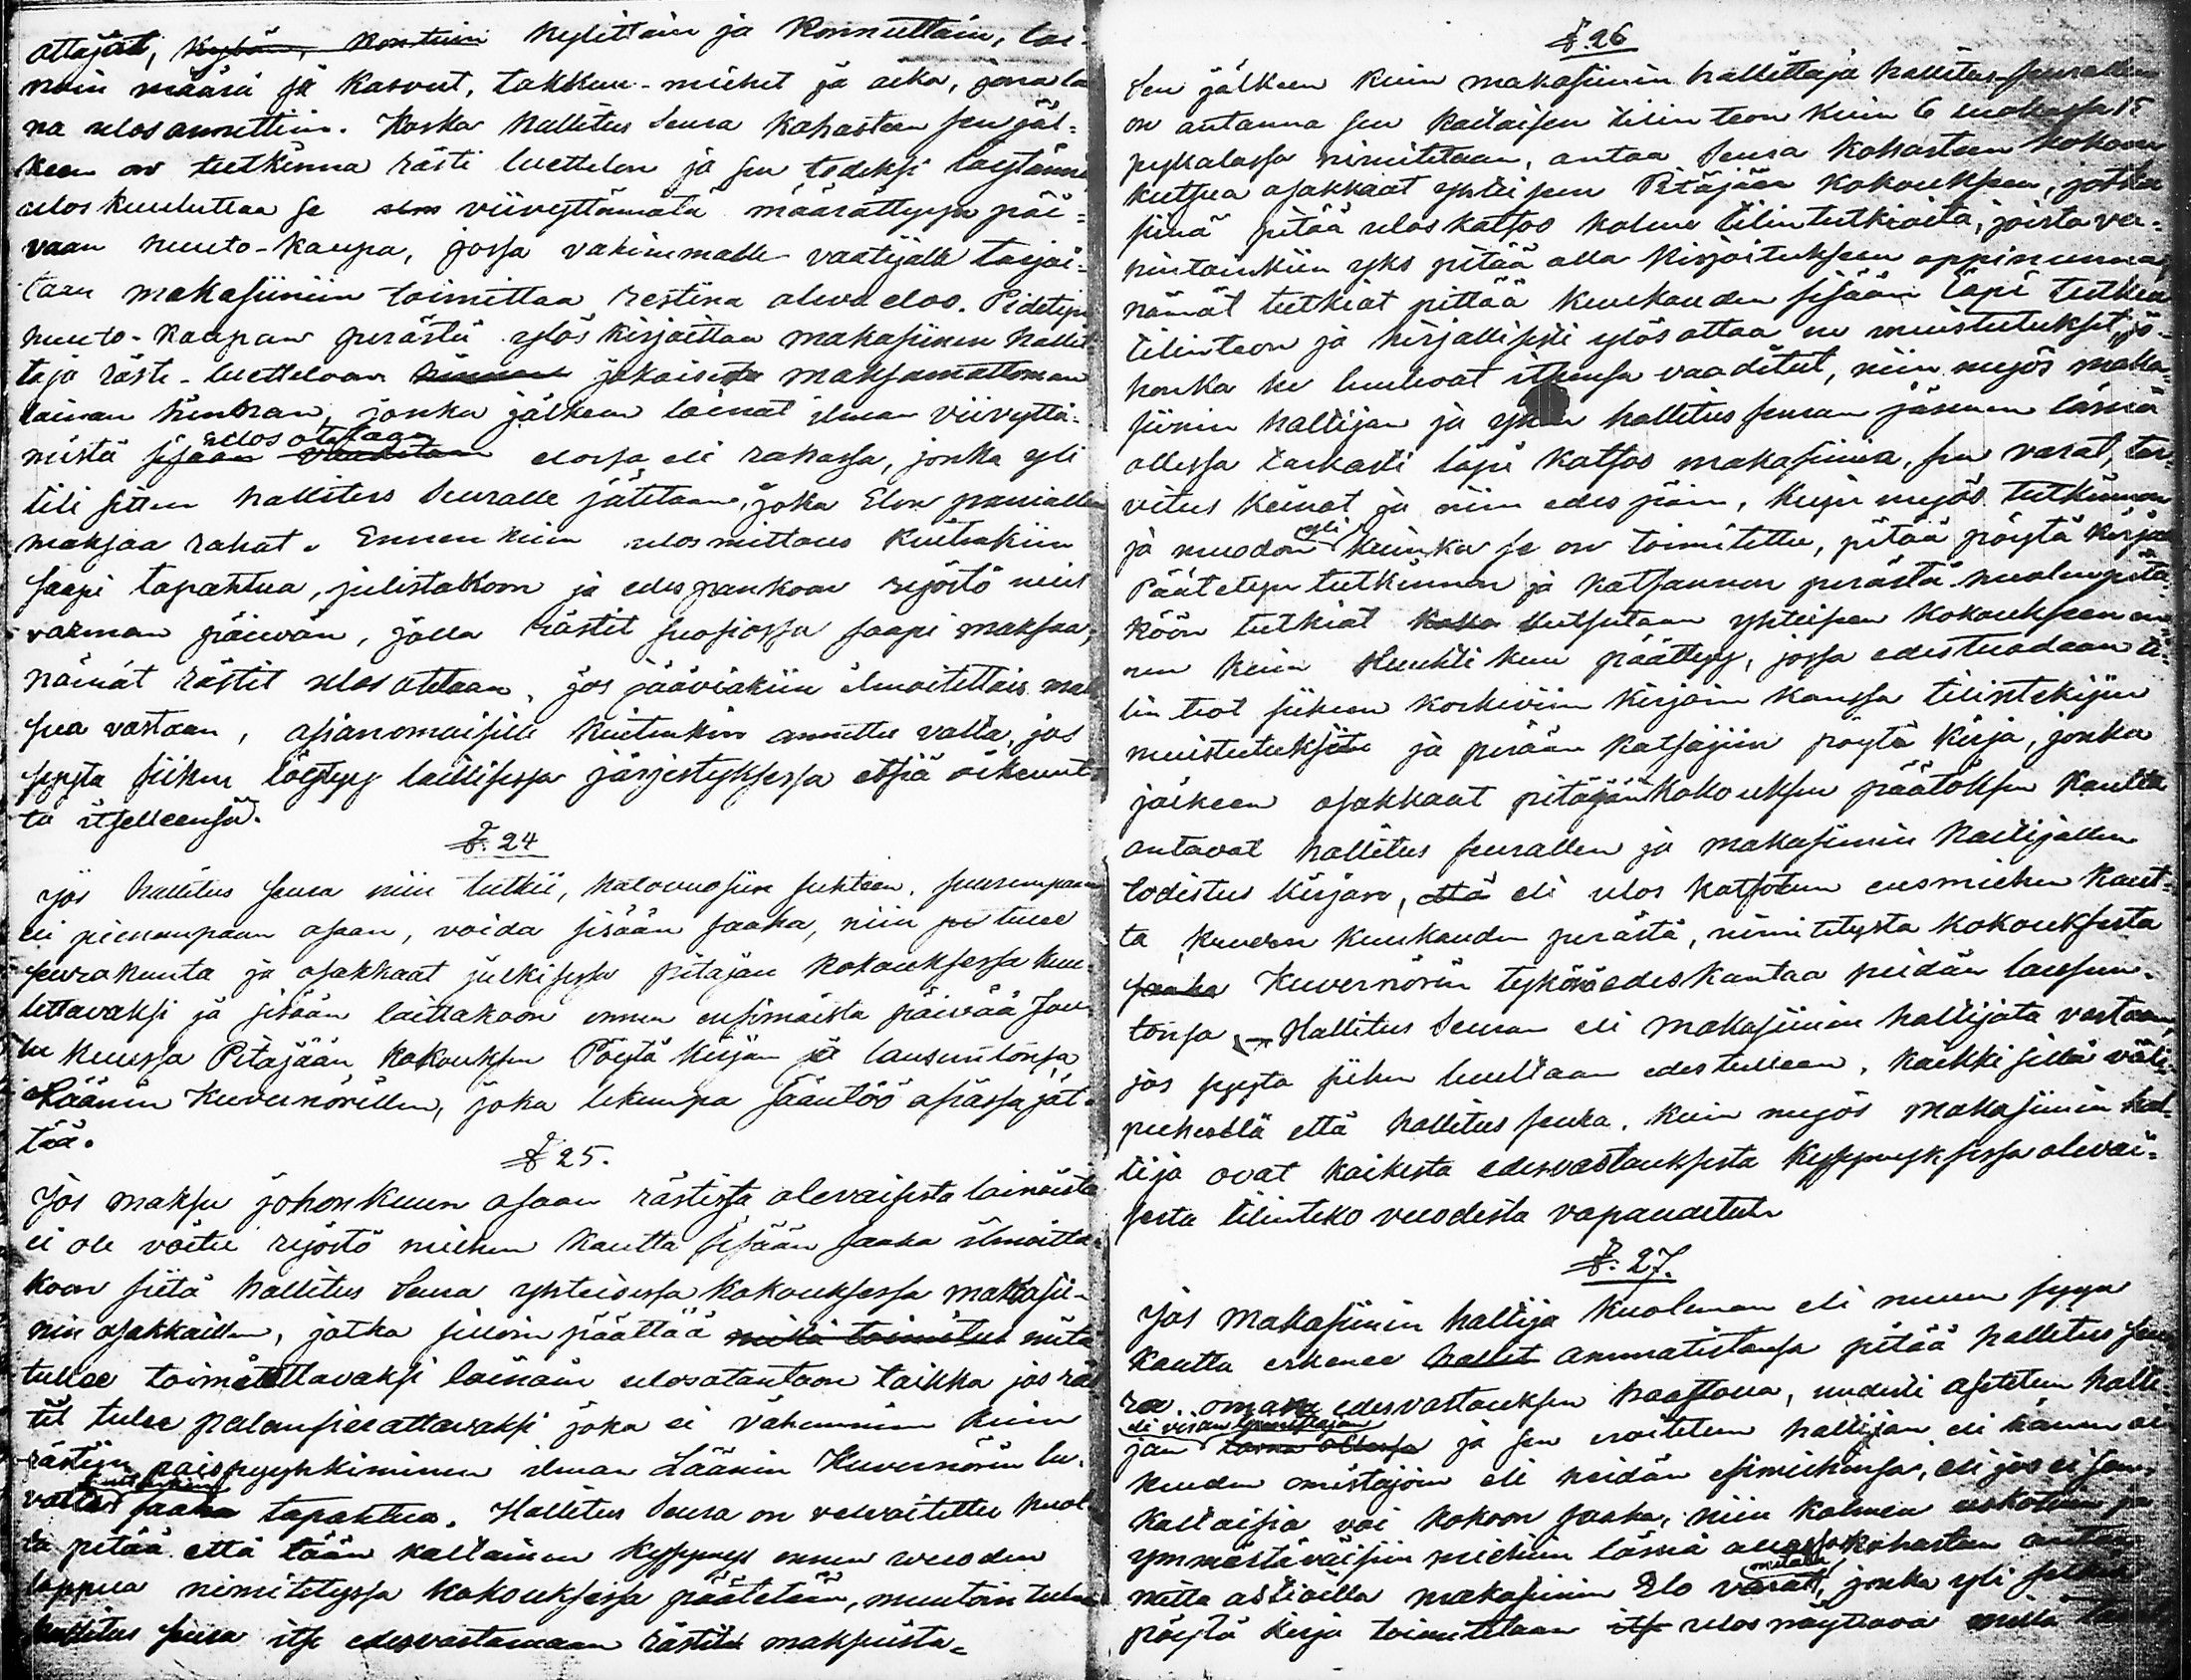 ottajat, kylittäin ja Konnuttain, lai-
nain määrä ja kasvut, takkuu-miehet ja aika, jona lai
na ulosannettiin. Koska Hallitus Seura kohastaan sen jäl=
keen on tutkinna rästi luettelon ja sen todeksi löytänny
uloskuuluttaa se viivyttämätä määrättyyn päi=
vään huuto-kaupa, jossa vähimmälle vaatijalle tarjoi=
taan makasiiniin toimittaa restina oleva elos. Pidetyn
huuto-kaupan perästä ylös kirjoittaa makasiinin hallit
taja rästi-luetteloon jokaisesta maksamattoman
lainan hinnan, jonka jälkeen lainat ilman viivyttä-
mistä ulos otetaan elossa eli rahassa, jonka yli
tili sitten hallitus Seuralle jätetään, joka Elon paniallen
maksaa rahat. Ennen kuin ulosmittaus kuitenkiin
saapi tapahtua, julistakoon ja edespankoon ryöstö mies
varman päivän, jolla rästit suosiossa saapi maksaa,
nämät rästit ulosotetaan, jos jääviäkiin ilmoitettais mak
sua vastaan, asianomaisille kuitenkin annettu valta, jos
syytä siihen löytyy laillisessa järjestyksessä etsiä oikeut-
ta itselleensä.
§. 24
Jos hallitus seura niin tutkii, katovuosien suhteen, suurempaan
eli pienempään osaan, voida sisään saaha, niin tulee
seurakunta ja osakkaat julkisessa pitäjän kokouksessa kuu-
lettavaksi ja sisään laittakoon ennen ensimäistä päivää Jou-
lu kuussa Pitäjään kokouksen Pöytä kirjan ja lausuntonsa
Läänin Kuvernörillen, joka likempa sääntöö asiassa jät-
tää.
§ 25.
Jos maksu johonkuun osaan rästissä olevaisista lainoista
ei ole voitu ryöstö miehen kautta sisään saaha ilmoitta-
koon siitä hallitus Seura yhteisessä kokouksessa makasii-
nin osakkaillen, jotka silloin päättää mitä
tullee toimitettavaksi lainain ulosotantoon taikka jos räs
tit tulee poispyyhittäväksi joka ei vähemmin kuin
rästiin poispyyhkiminen ilman Läänin Kuvernörin lu-
vatta tapahtua. Hallitus Seura on velvoitettu huol-
ta pitää että tään kaltainen kysymys ennen vuoden
loppua nimitetyssä kokouksessa päätetään, muutoin tulee
hallitus seura itse edesvastamaan rästit maksuista=
§. 26
Sen jälkeen kuin makasiinin hallittaja hallitus-seurallen
on antanna sen kaltaisen tilin teon kuin 6
pykälässä nimitetään, antaa Seura kohastaan kokoon
kutsua osakkaat yhteiseen Pitäjään kokoukseen, jotka
siinä pitää ulos katsoo kolme tilintutkioita, joista vä-
hintäinkiin yks pitää olla kirjoitukseen oppinunna,
nämät tutkiat pittää kuukauden sisään läpi tutkia
tilinteon ja kirjallisesti ylösottaa ne muistutukset, jo-
honka he luulevat itsensä vaaditut, niin myös maka-
siinin hallijan ja hallitus seuran jäsenen läsnä
ollessa tarkasti läpi katsoo makasiinia, sen varat, tar-
vitus keinot ja niin edes päin, kuin myös tutkinnon
ja muodon yli kuinka se on toimitettu, pitää pöytä kirjaa
Päätetyn tutkinnon ja katsannon perästä huolenpitä
köön tutkiat kutsutaan yhteiseen kokoukseen en-
nen kuin Huuhti kuu päättyy, jossa edestuodaan ti-
lin teot siiheen koskeviin kirjain kanssa tilintekijän
muistutuksista ja perään katsojain pöytä kirja, jonka
jälkeen osakkaat pitäjään kokouksen päätöksen kautta
antavat hallitus seurallen ja makasiinin hallijallen
todistus kirjan, eli ulos katsotun eusmiehen kaut-
ta kuuden kuukauden perästä, nimitetystä kokouksesta
Kuvernörin tykönä edeskantaa heidän lausun-
tonsa Hallitus Seuran eli Makasiinin hallijata vastaan,
jos syytä siihen luullaan edestulleen, kaikki sillä väli
puheella että hallitus seura, kuin myös Makasiinin hal-
lija ovat kaikesta edesvastauksesta kysymyksessä olevai-
sesta tilinteko vuodesta vapaudetut
§. 27.
Jos Makasiinin hallija kuoleman eli muun syyn
kautta erkenee ammatistansa pitää hallitus seu
ra omana edesvastauksen haastolla, uudesti asetetun halli-
jan eli viran toimittajan ja sen eroitetun hallijan eli hänen oi
keuden omistajoin eli heidän esimiehensä, eli jos ei sen-
kaltaisia voi kokoon saaha, niin kolmen uskotun ja
ymmärtäväisiin miehiin läsnä ollessa kohastaan antaa
mitta astioilla makasiinin Elo varat mitata, jonka yli sitten
pöytä kirja toimitetaan ulos näyttävä millä